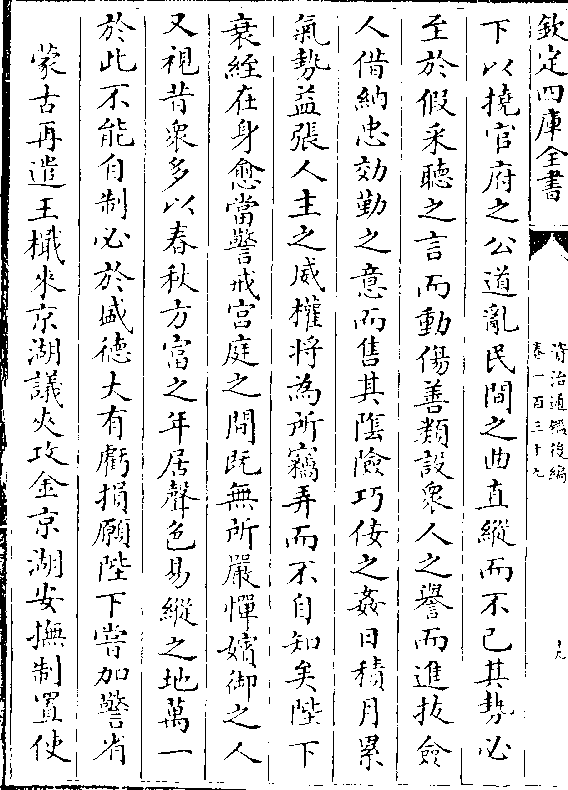 欽定四庫全書
資治通鑑後編
卷一百三十九
下以撓官府之公道亂民間之曲直縱而不已其勢必
至於假采聽之言而動傷善類設衆人之譽而進拔憸
人借納忠効勤之意而售其陰險巧佞之姦日積月累
氣勢益張人主之威權將為所竊弄而不自知矣陛下
衰絰在身愈當警戒宮庭之間既無所嚴憚嬪御之人
又視昔衆多以春秋方富之年居聲色易縱之地萬一
於此不能自制必於盛德大有虧損願陛下嘗加警省
蒙古再遣王檝來京湖議夾攻金京湖安撫制置使